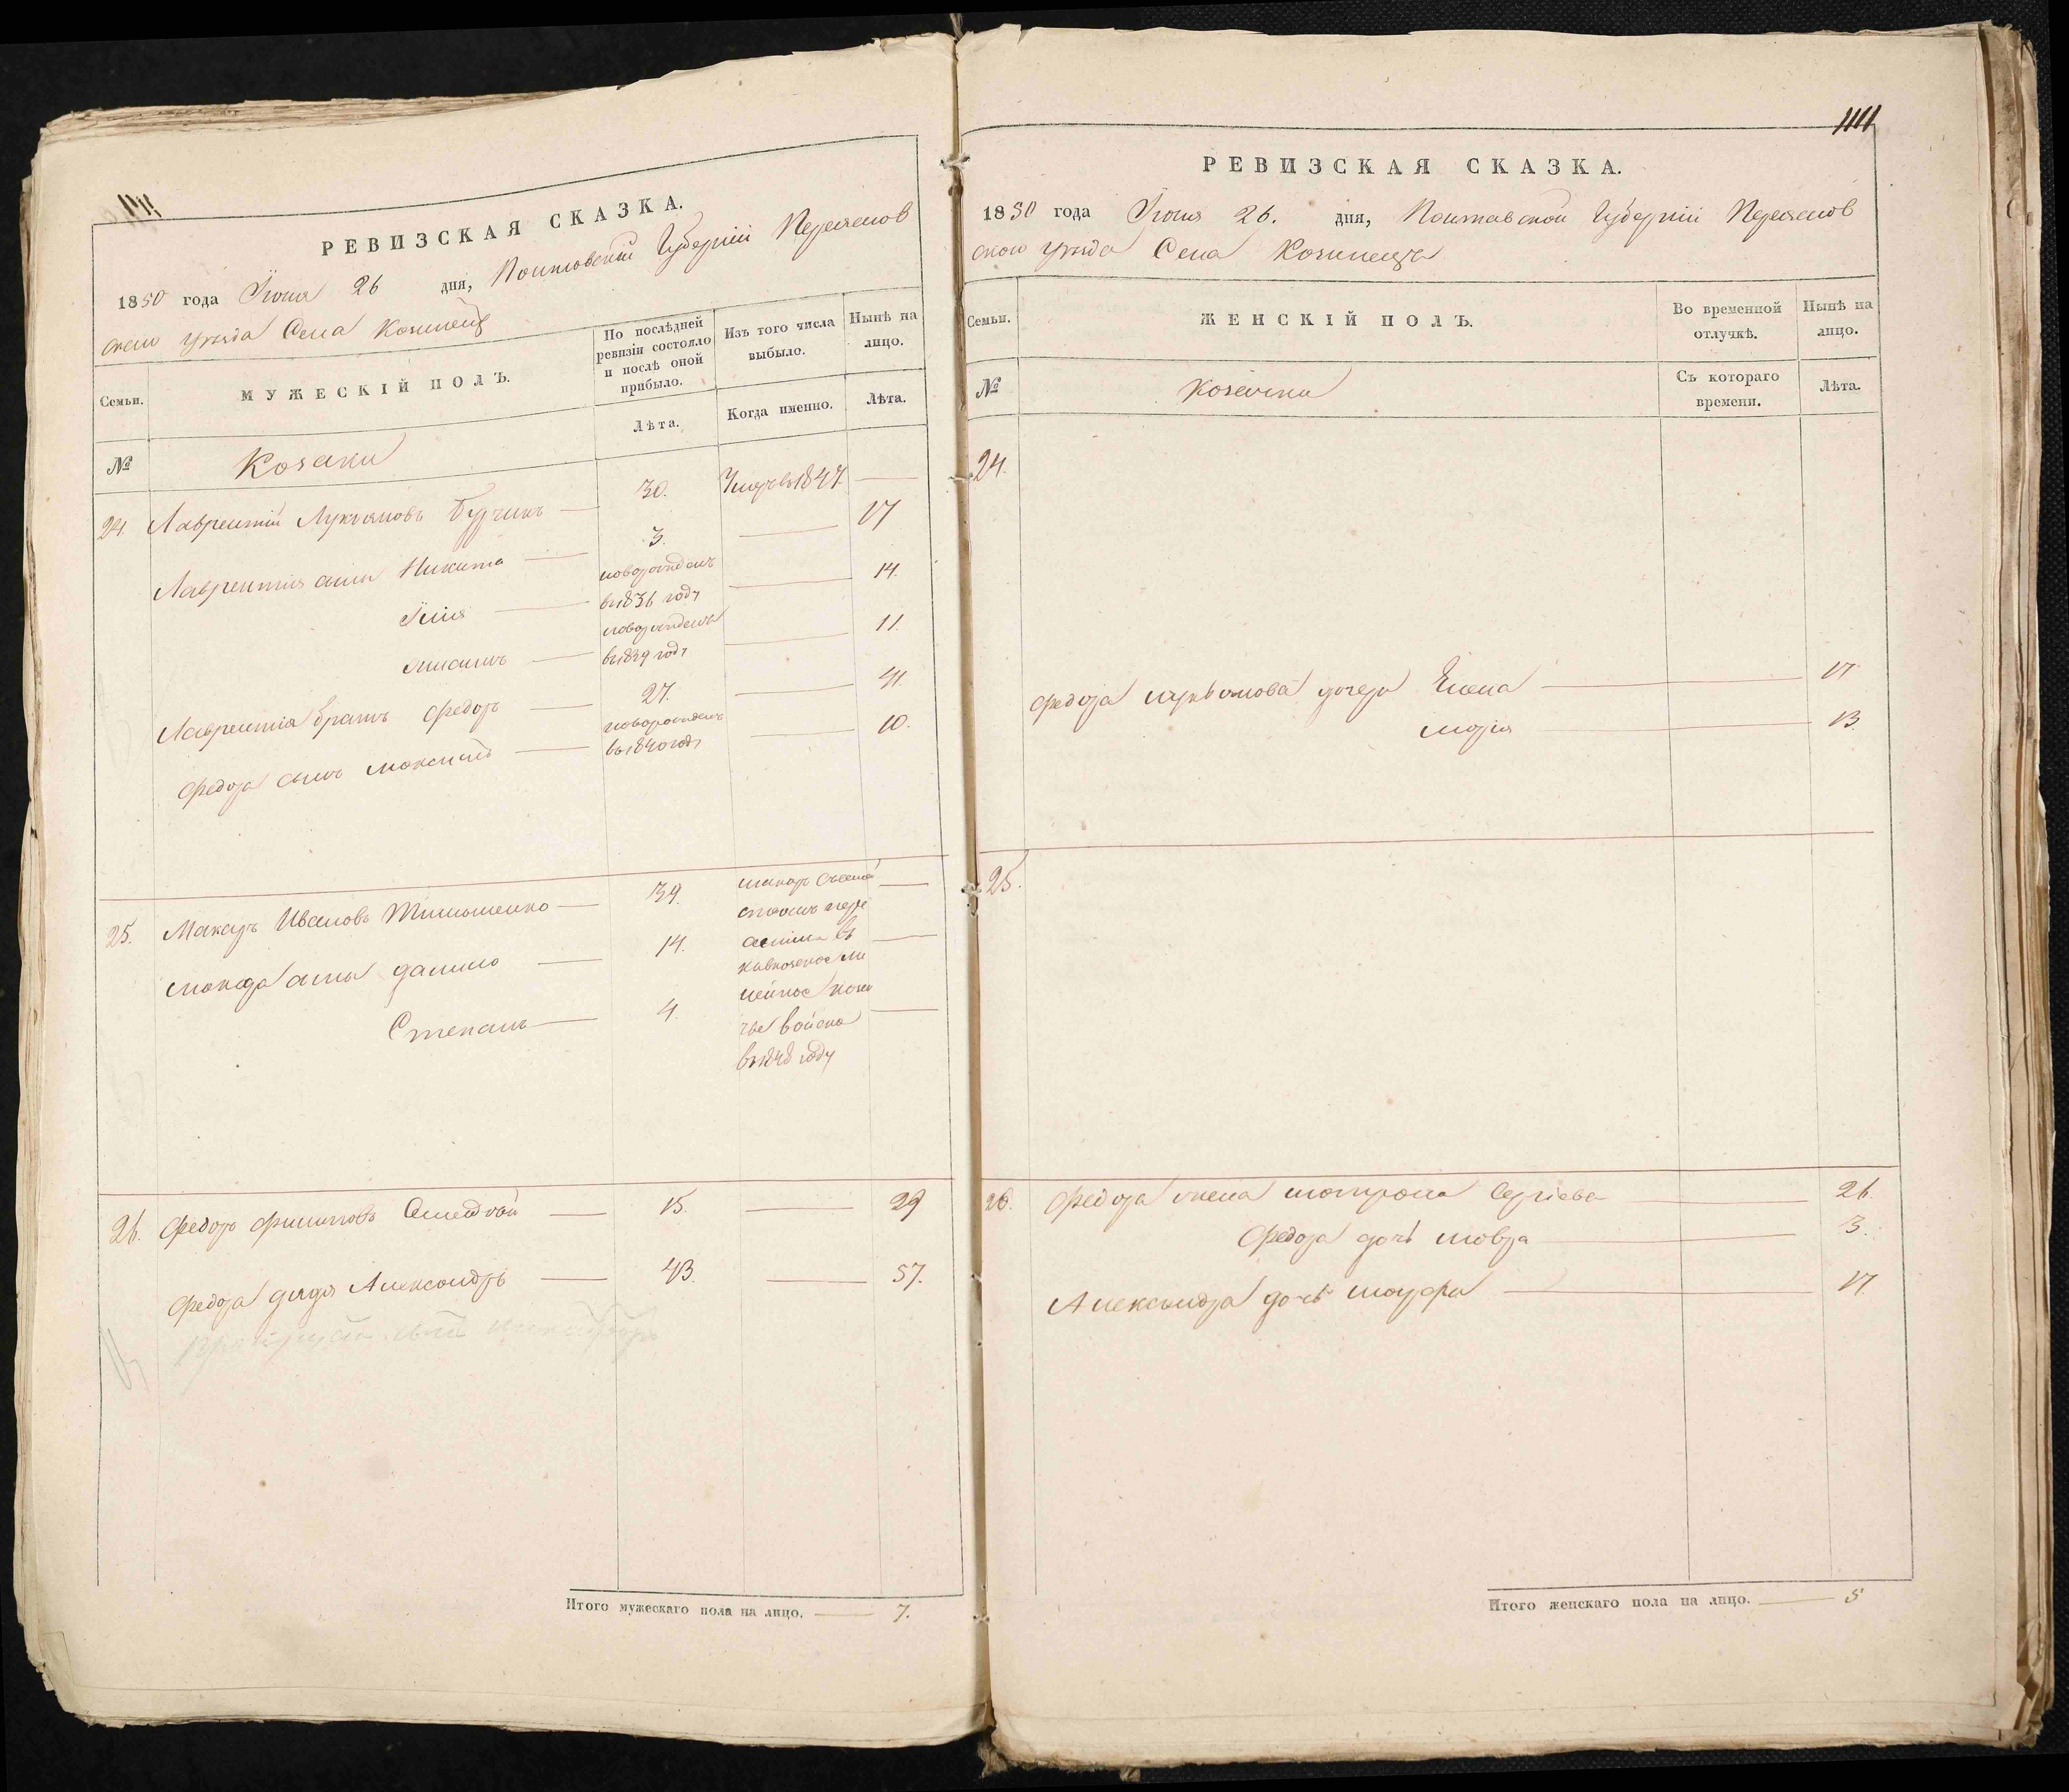 РЕВИЗСКАЯ СКАЗКА.
1850 года Іюня 26 дня, Полтавской Губерніи Переяслов
ского уезда Села Козинецъ
Семьи.
МУЖЕСКІЙ ПОЛЪ.
По послѣдней ревизіи состояло и послѣ оной прибыло.
Изъ того числа выбыло.
Нынѣ на лицо.
№
Козаки
Лѣта.
Когда именно.
Лѣта.
24. Лаврентій Лукьяновъ 30. 1847
Лаврентія сынъ Никита 3. 17
Илія новорожденъ в 1836 году 14.
новорожденъ в 1839 году 11.
Лаврентія братъ Федоръ 27. 41.
Федора сынъ Максимъ новорожденъ в 1840 году 10.
25. Макаръ Ивановъ Тимошенко 39. Макаръ съ семей
ствомъ пере
Макара сынъ Данило 14.
Кавказское ли
нейное козач
Степанъ 4. чье войско
в 1848 году
26. Федоръ Филиповъ 15. 29
Федора дядя Александръ 43. 57.
Итого мужескаго пола на лицо. 7.
РЕВИЗСКАЯ СКАЗКА.
1850 года Іюня 26. дня, Полтавской Губерніи Переяслов
ского уезда Села Козинецъ
Семьи.
ЖЕНСКІЙ ПОЛЪ.
Во временной отлучкѣ.
Нынѣ на лицо.
№
Козачки
Съ котораго времени.
Лѣта.
24.
Федора Лукьянова дочери Елена 17
Марія 13.
25.
26. Федора жена Матрона Сергіева 26.
Федора дочь Мавра 3.
Александра дочь 17.
Итого женскаго пола на лицо. 5